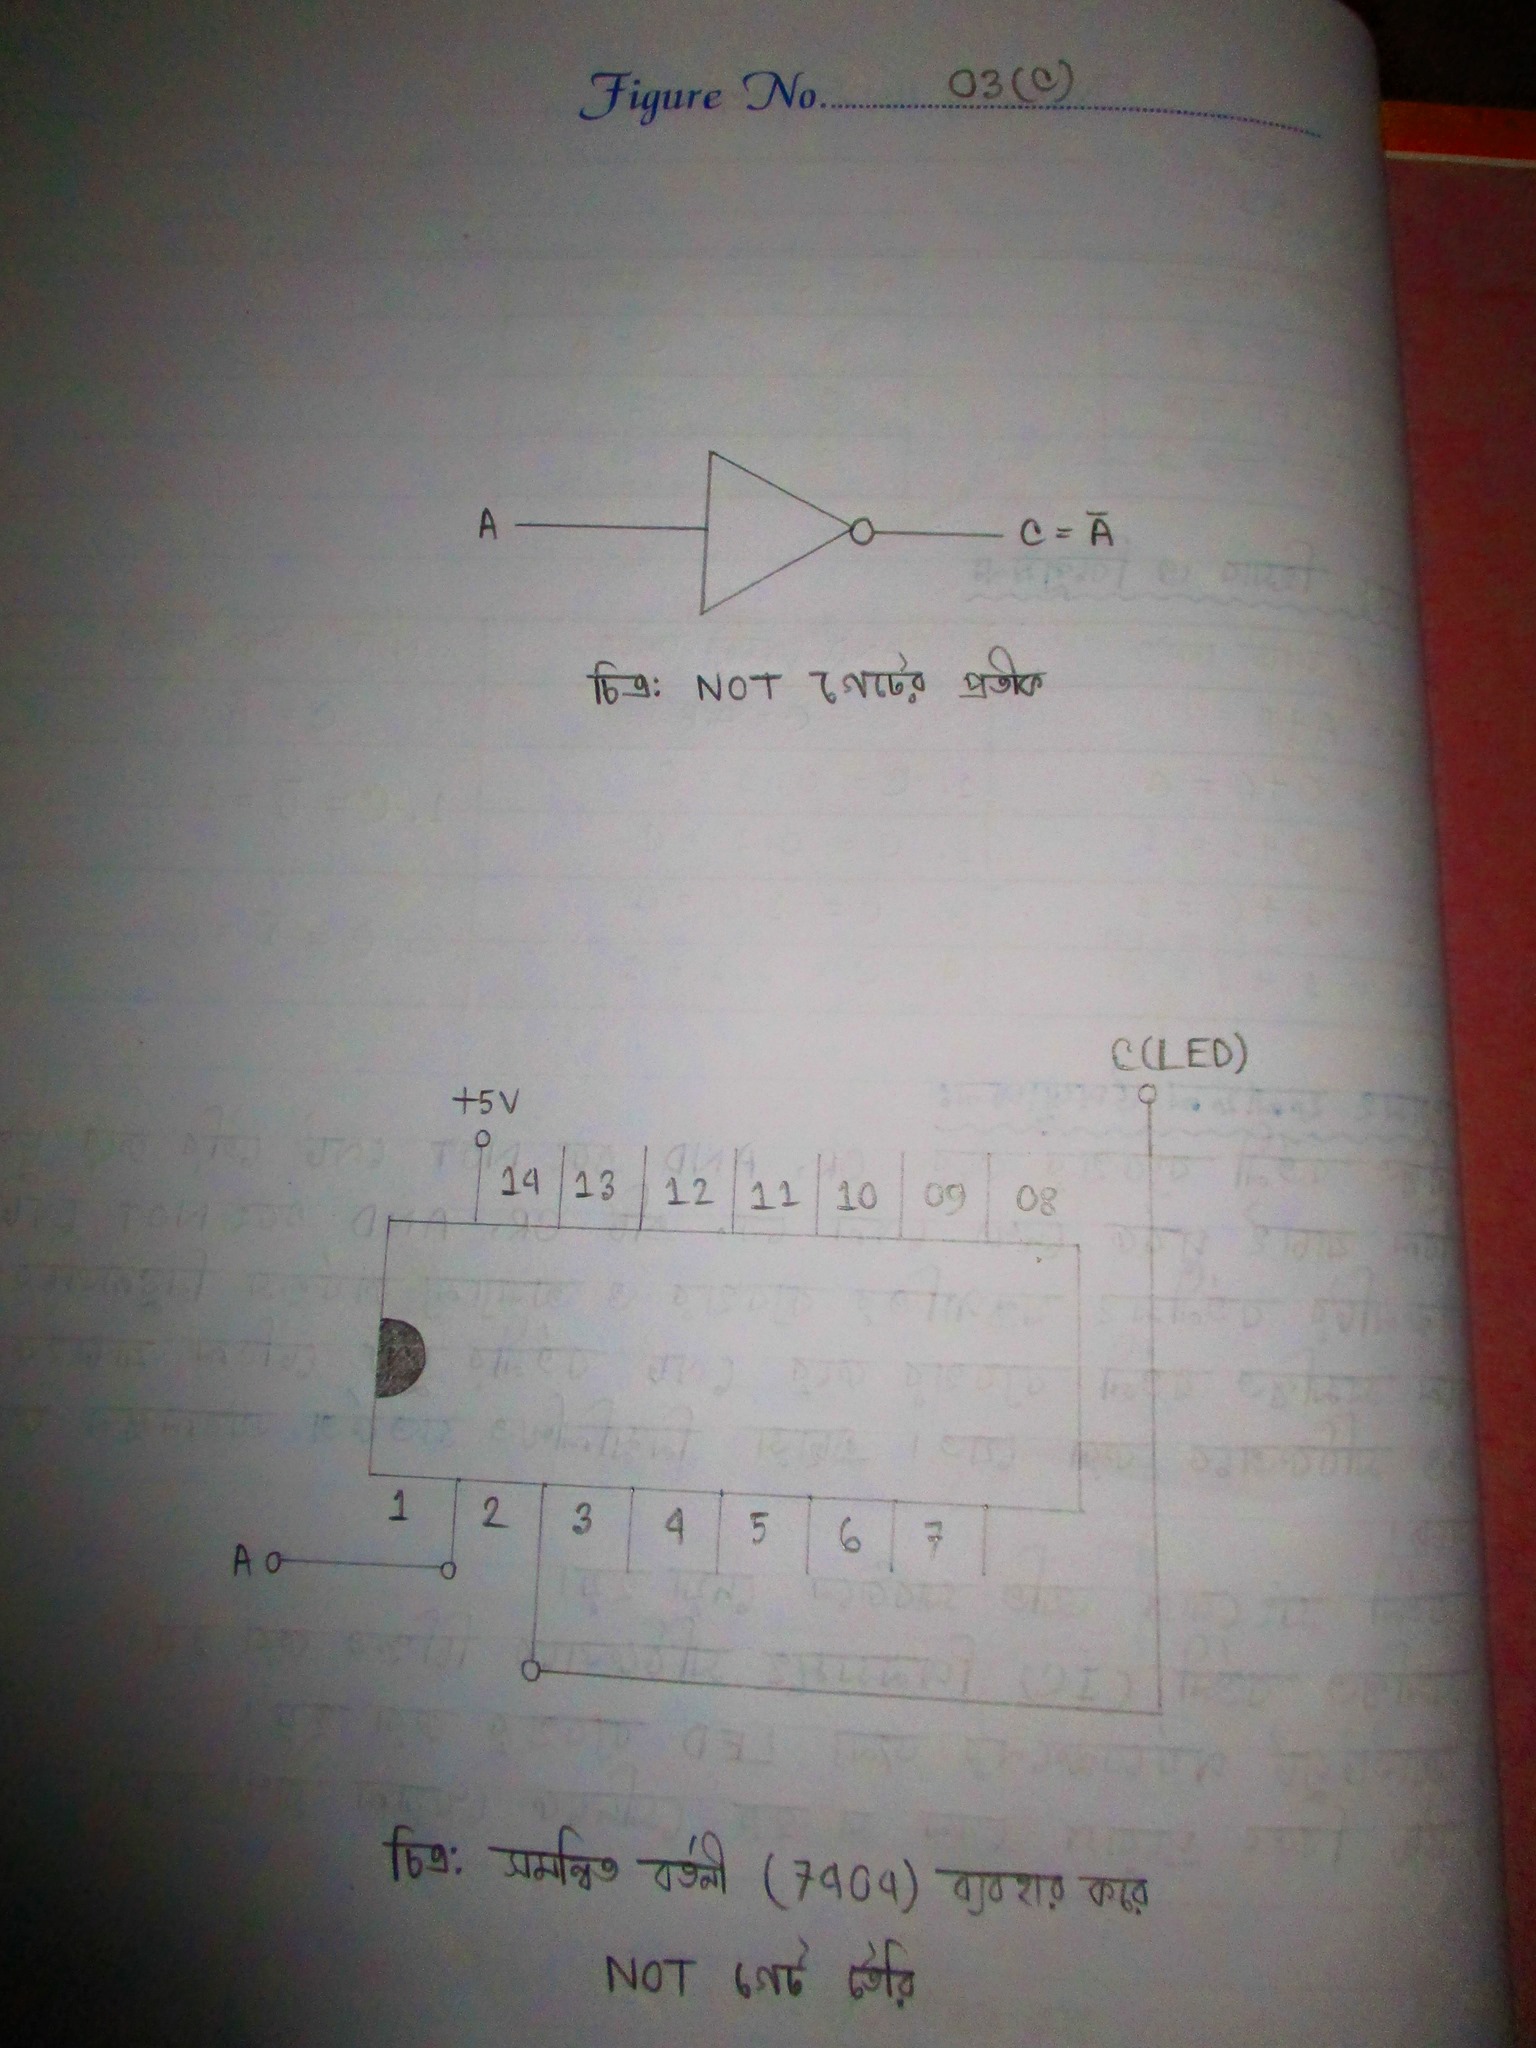 Figure No. 03(C)
A
C = Ā
চিত্র: NOT গেটের প্রতীক
C(LED)
+5V
14 13 12 11 10 09 08
1 2 3 4 5 6 7
A
চিত্র: সমন্বিত বর্তনী (7404) ব্যবহার করে
NOT গেট তৈরি